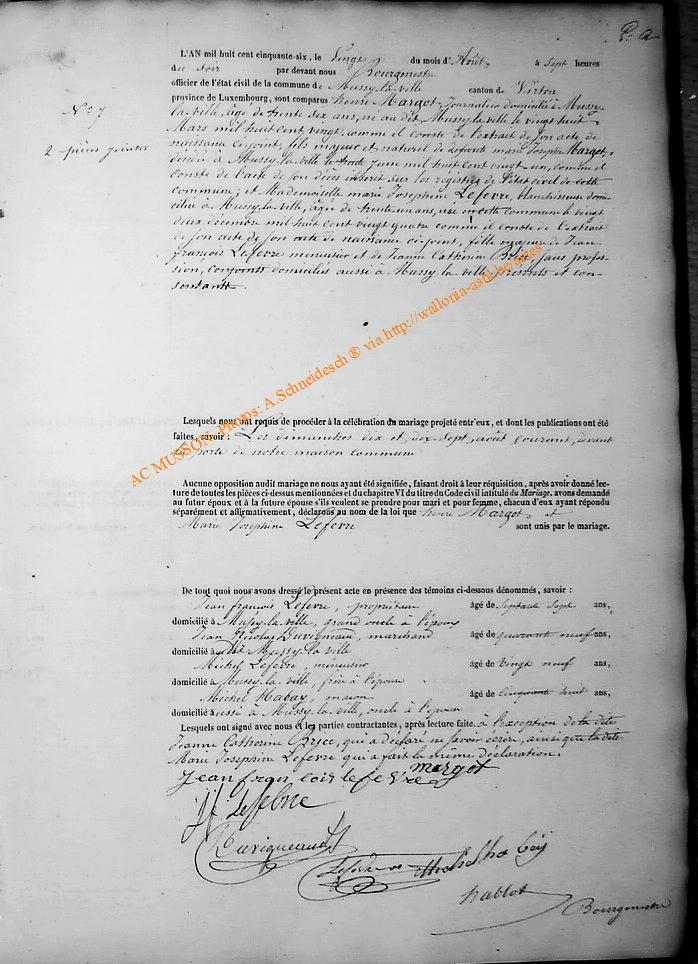 P. a
L'AN mil huit cent cinquante-six, le Vingt du mois d'Août à Sept heures
du soir par devant nous Bourgmestre
officier de l'état civil de la commune de Mussy-la-ville canton de Virton
province de Luxembourg, sont comparus henri Margot, Journalier domicilié à Mussy
la-ville, âgé de trente six ans, né au dit Mussy-la-ville le vingt huit
Mars mil huit cent vingt, comme il conste de l'extrait de son acte de
naissance ci-joint, fils majeur et naturel de défunte marie Josephe Margot,
décédée à Mussy-la-ville le trente Juin mil huit cent vingt un, comme il
conste de l'acte de son décès inscrit sur les régistres de l'état civil de cette
commune; et Mademoiselle marie Josephine Lefevre, blanchisseuse domi-
ciliée à Mussy-la-ville, âgée de trente un ans, née en cette commune le vingt
deux décembre mil huit cent vingt quatre comme il conste de l'extrait
de son acte de son acte de naissance ci-joint, fille majeure de Jean
françois Lefevre menuisier et de Jeanne Catherine Brice, sans profes-
sion, conjoints domiciliés aussi à Mussy-la-ville présents et con-
sentants.
N° 7
2 pièces jointes
Lesquels nous ont requis de procéder à la célébration du mariage projeté entr'eux, et dont les publications ont été
faites, savoir : Les dimanches dix et dix-sept août courant, devant
la porte de notre maison commune
Aucune opposition audit mariage ne nous ayant été signifiée, faisant droit à leur réquisition, après avoir donné lec-
ture de toutes les pièces ci-dessus mentionnées et du chapitre VI du titre du Code civil intitulé du Mariage, avons demandé
au futur époux et à la future épouse s'ils veulent se prendre pour mari et pour femme, chacun d'eux ayant répondu
séparément et affirmativement, déclarons au nom de la loi que henri Margot et
Marie Josephine Lefevre sont unis par le mariage.
De tout quoi nous avons dressé le présent acte en présence des témoins ci-dessous dénommés, savoir :
Jean françois Lefevre, propriétaire âgé de septante sept ans,
domicilié à Mussy-la-ville, grand oncle à l'épouse
Jean Nicolas Duvigneaud, marchand âgé de quarante neuf ans,
domicilié à dit Mussy-la-ville
Michel Lefevre, menuisier âgé de vingt neuf ans,
domicilié à Mussy-la-ville, frère à l'épouse
Michel Habay, maçon âgé de cinquante huit ans,
domicilié aussi à Mussy-la-ville, oncle à l'épouse
Lesquels ont signé avec nous et les parties contractantes, après lecture faite. à l'exception de la dite
Jeanne Catherine Brice, qui a déclaré ne savoir écrire, ainsi que la dite
Marie Josephine Lefevre qui a fait la même déclaration.
Jean fran cois lefevre margot
Lefebvre
Duvigneaud
Lefevre Michel habay
hablot
Bourgmestre
AC MUSSON, Photos: A.Schneidesch ® via http://wallonia-asbl.be/sites